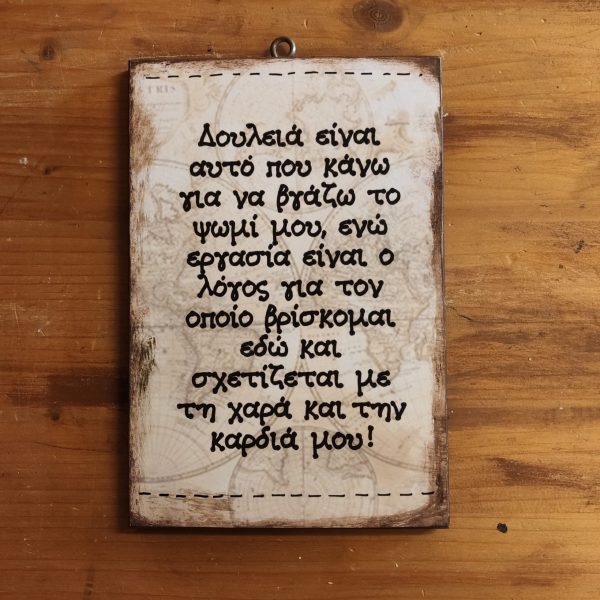 Δουλειά είναι
αυτό που κάνω
για να βγάζω το
ψωμί μου, ενώ
εργασία είναι ο
λόγος για τον
οποίο βρίσκομαι
εδώ και
σχετίζεται με
τη χαρά και την
καρδιά μου!